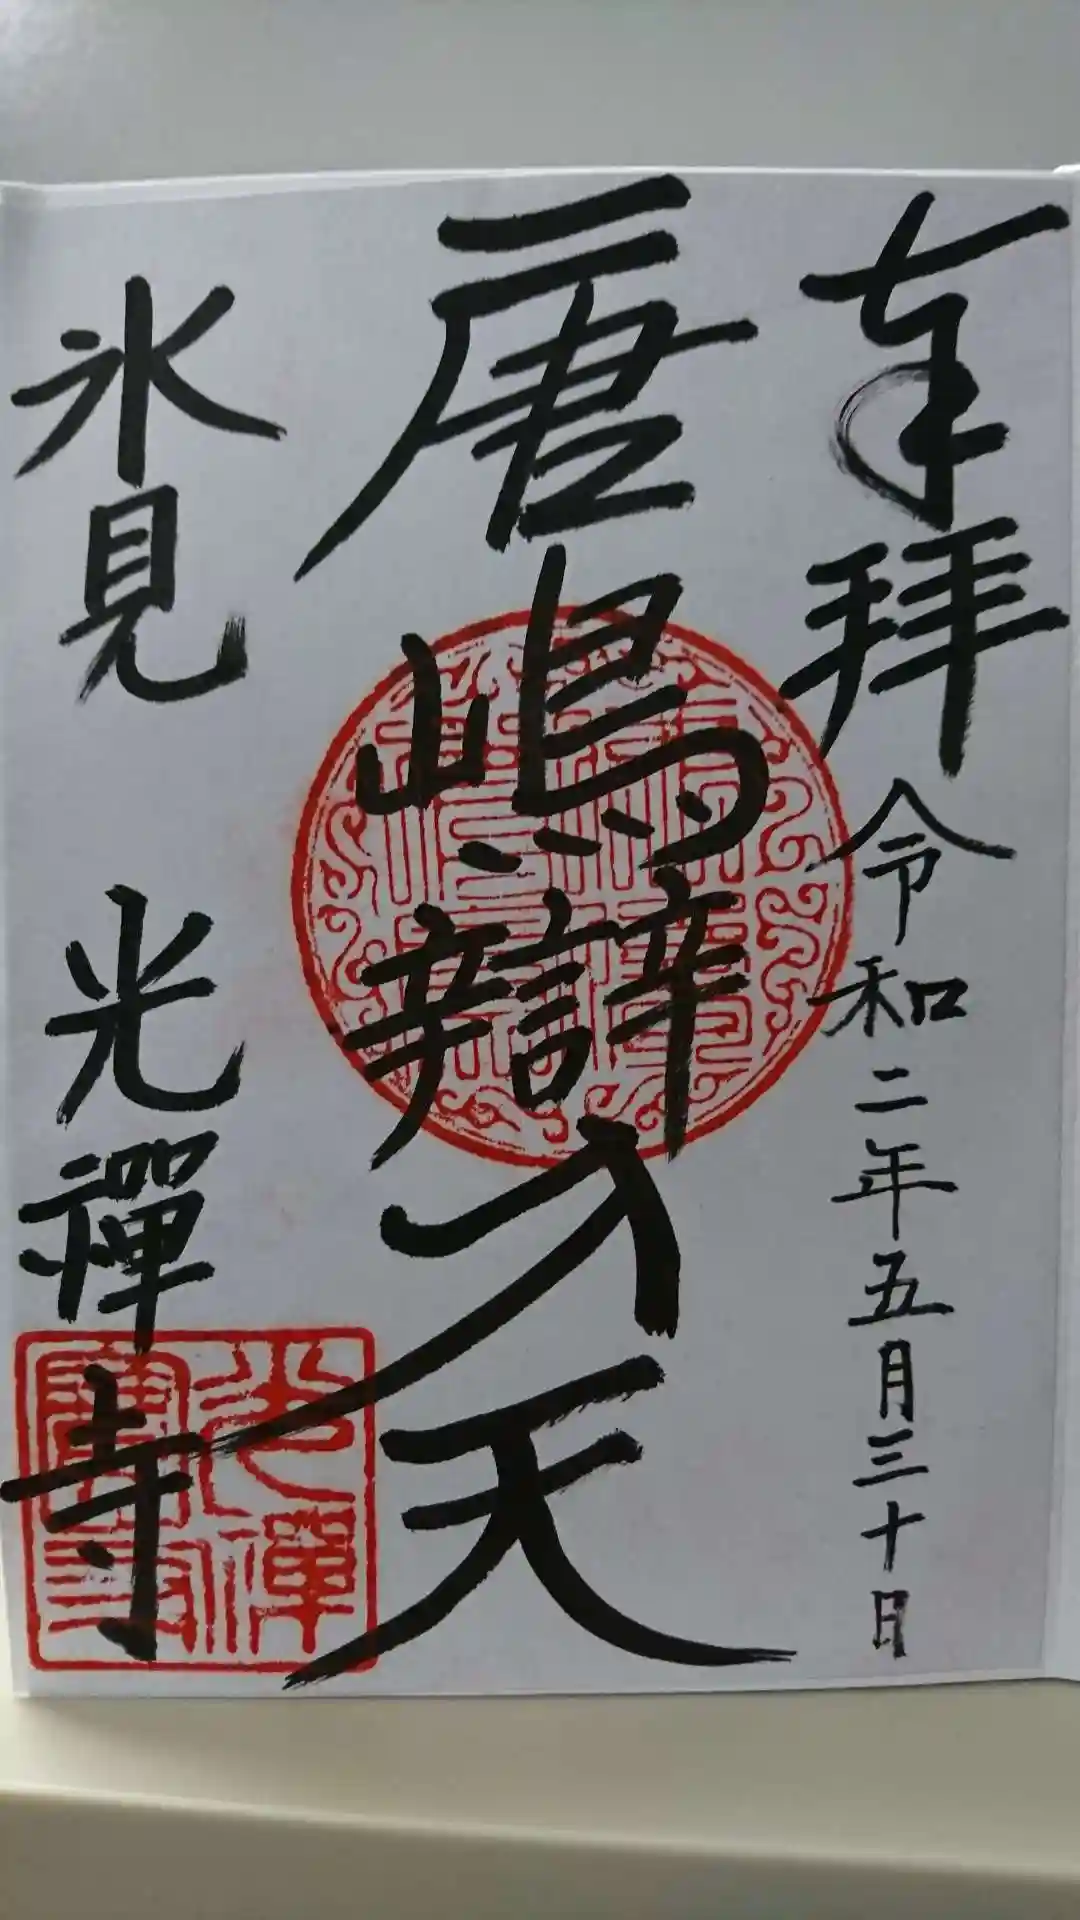 奉拝 令和二年五月三十日
唐嶋辯才天
氷見 光禪寺